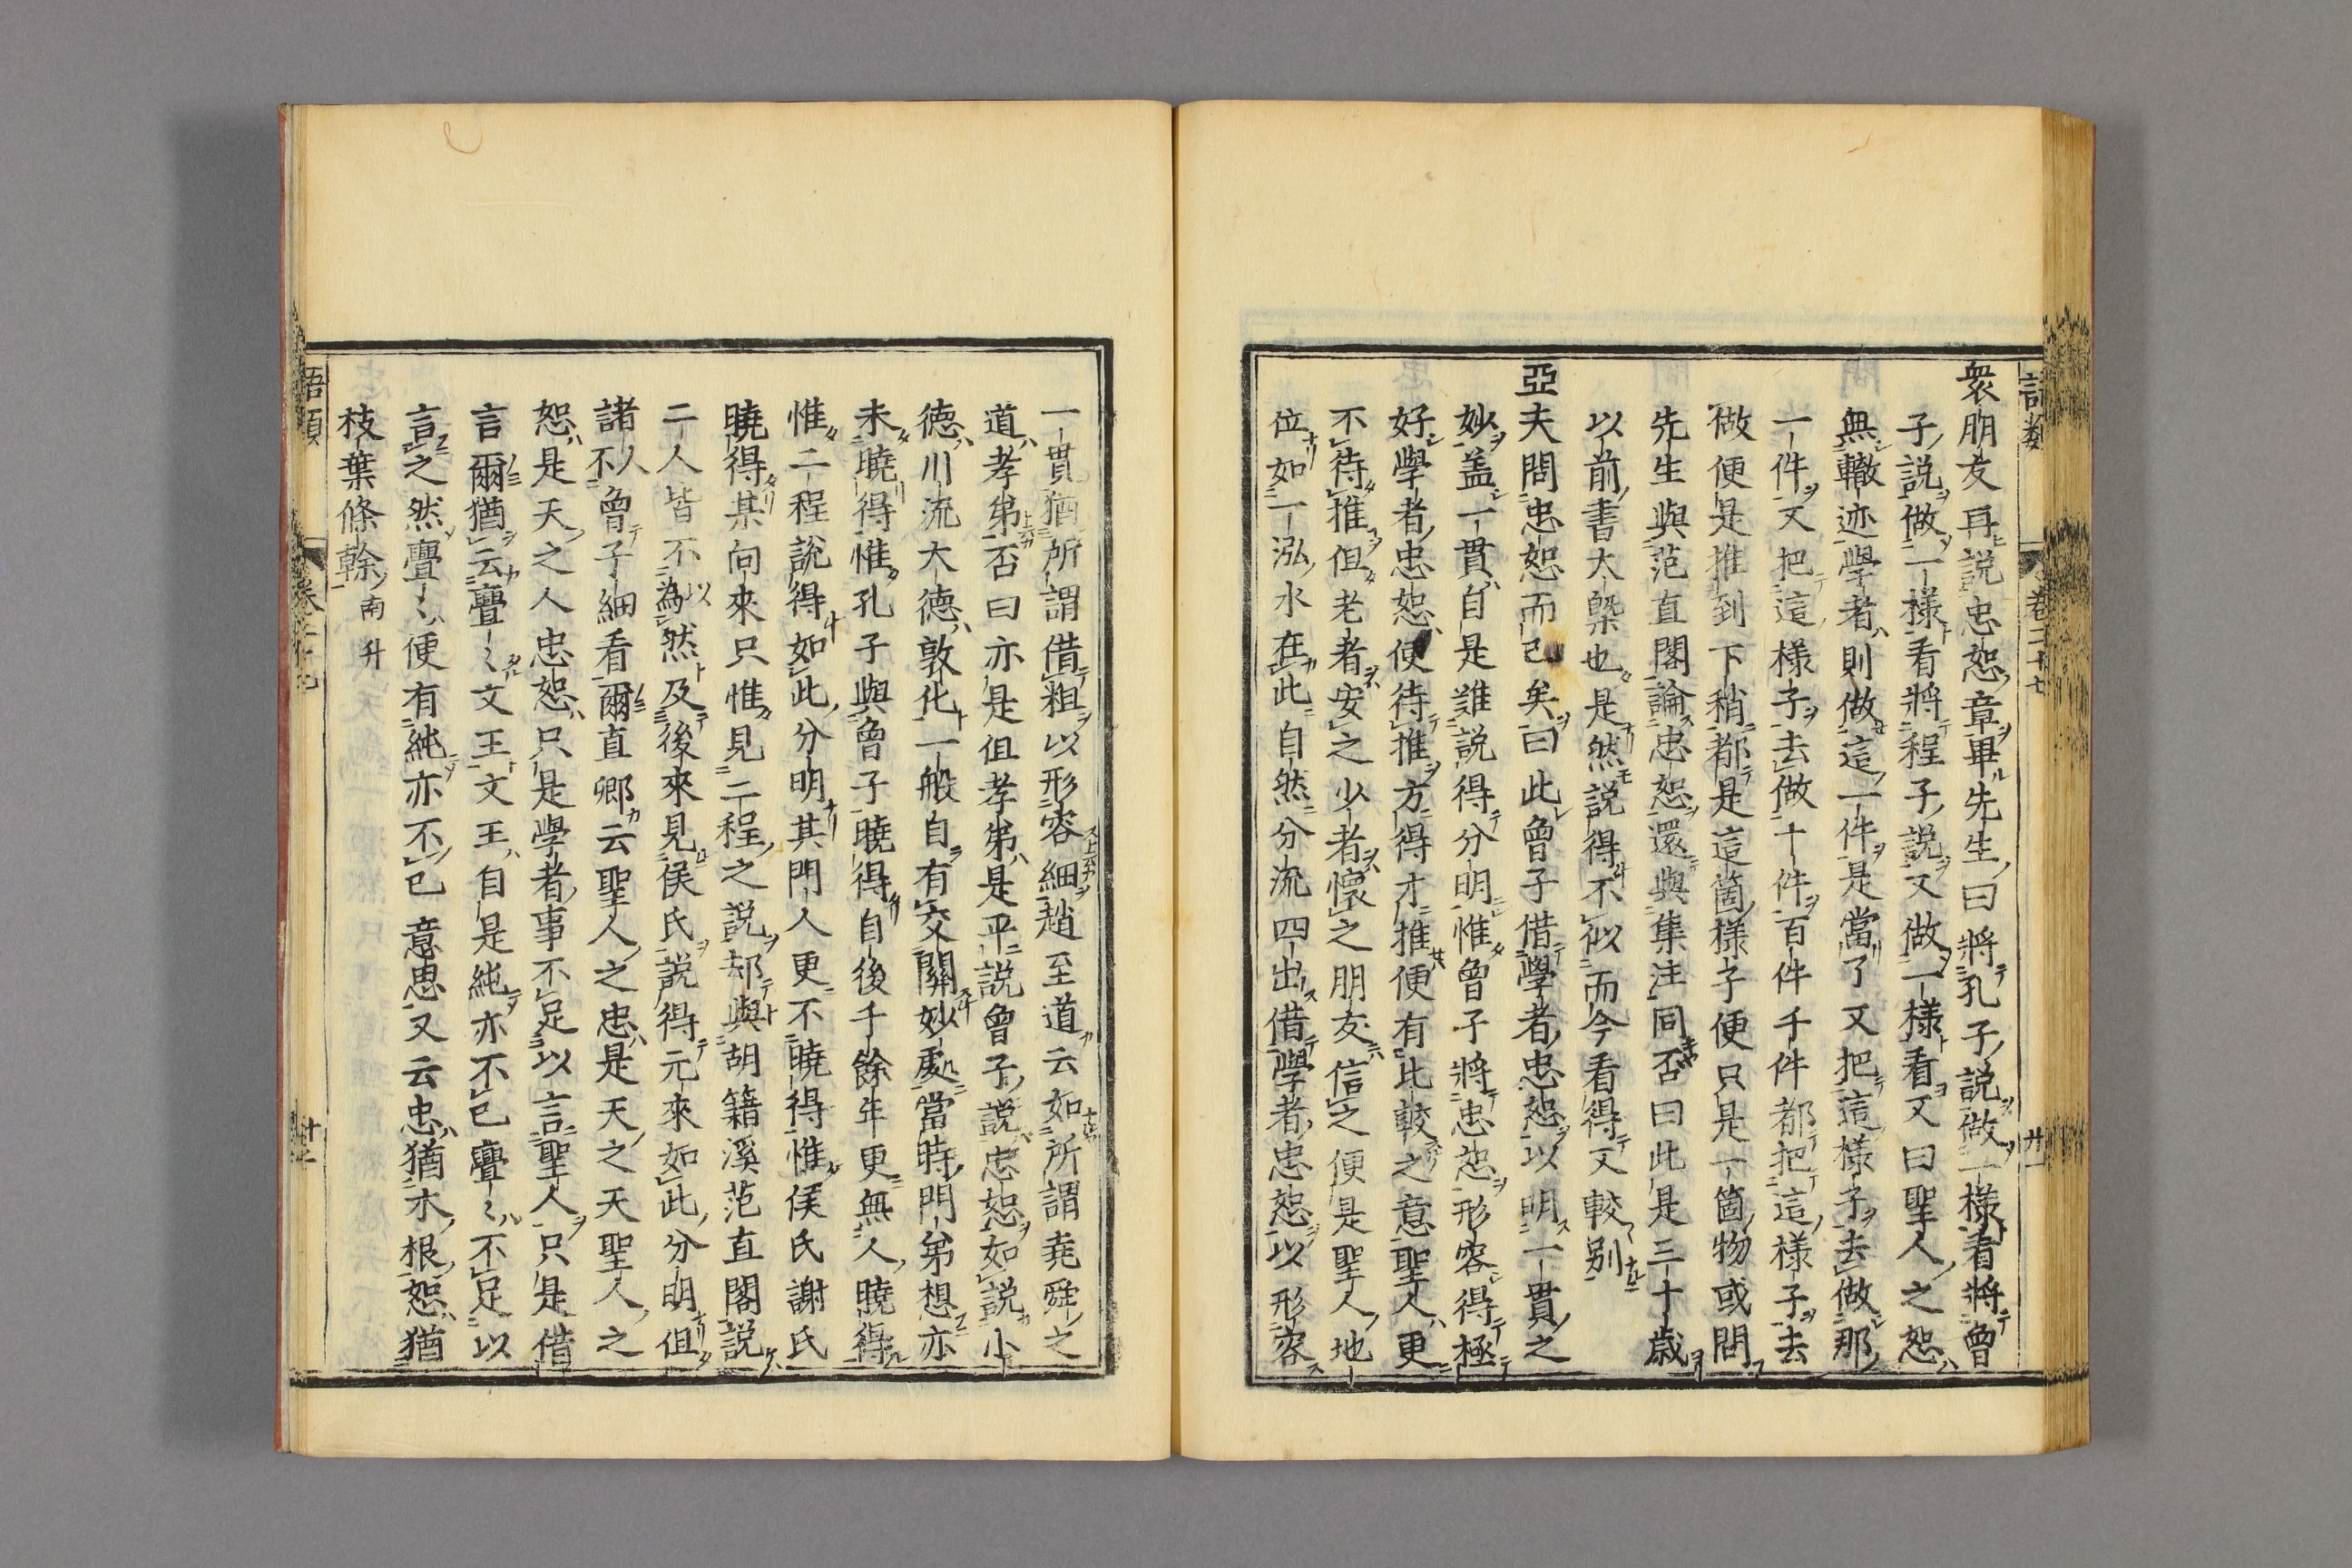 語類 卷二十七 廿一
衆朋友再說忠恕章畢先生曰將孔子說做一樣看將曾
子說做一樣看將程子說又做一樣看又曰聖人之恕
無轍迹學者則做這一件是當了又把這樣子去做那
一件又把這樣子去做十件百件千件都把這樣子去
做便是推到下稍都是這箇樣子便只是一箇物或問
先生與范直閣論忠恕還與集注同否曰此是三十歲
以前書大槩也是然說得不似而今看得又較別
亞夫問忠恕而已矣曰此曾子借學者忠恕以明一貫之
妙盖一貫自是難說得分明惟曾子將忠恕形容得極
好學者忠恕便待推方得才推便有比較之意聖人更
不待推但老者安之少者懷之朋友信之便是聖人地
位如一泓水在此自然分流四出借學者忠恕以形容
一貫猶所謂借粗以形容細趙至道云如所謂堯舜之
道孝弟否曰亦是但孝弟是平說曾子說忠恕如說小
德川流大德敦化一般自有交關妙處當時門弟想亦
未曉得惟孔子與曾子曉得自後千餘年更無人曉得
惟二程說得如此分明其門人更不曉得惟侯氏謝氏
曉得某向來只惟見二程之說却與胡籍溪范直閣說
二人皆不以為然及後來見侯氏說得元來如此分明但
諸人不曾子細看爾直卿云聖人之忠是天之天聖人之
恕是天之人忠恕只是學者事不足以言聖人只是借
言爾猶云亹〻文王文王自是純亦不已亹〻不足以
言之然亹〻便有純亦不已意思又云忠猶木根恕猶
枝葉條幹 南升
語類